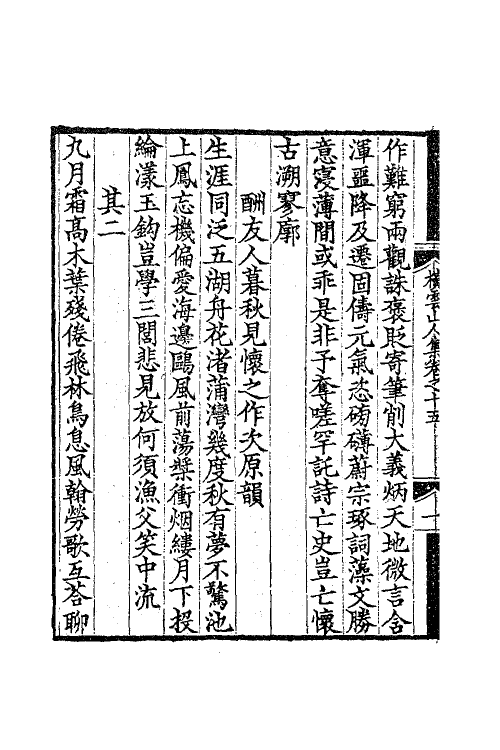 作難窮兩觀誅褒貶寄筆削大義炳天地微言含
渾噩降及遷固儔元氣恣磅礴蔚宗琢詞藻文勝
意寖薄閒或乖是非予奪嗟罕託詩亡史豈亡懷
古溯寥廓
酬友人暮秋見懷之作次原韻
生涯同泛五湖舟花渚蒲灣幾度秋有夢不驚池
上鳳忘機偏愛海邊鷗風前蕩槳衝烟縷月下投
綸漾玉鈎豈學三閭悲見放何須漁父笑中流
其二
九月霜高木葉殘倦飛林鳥息風翰勞歌互荅聊
橫雲山人集卷之十五
一